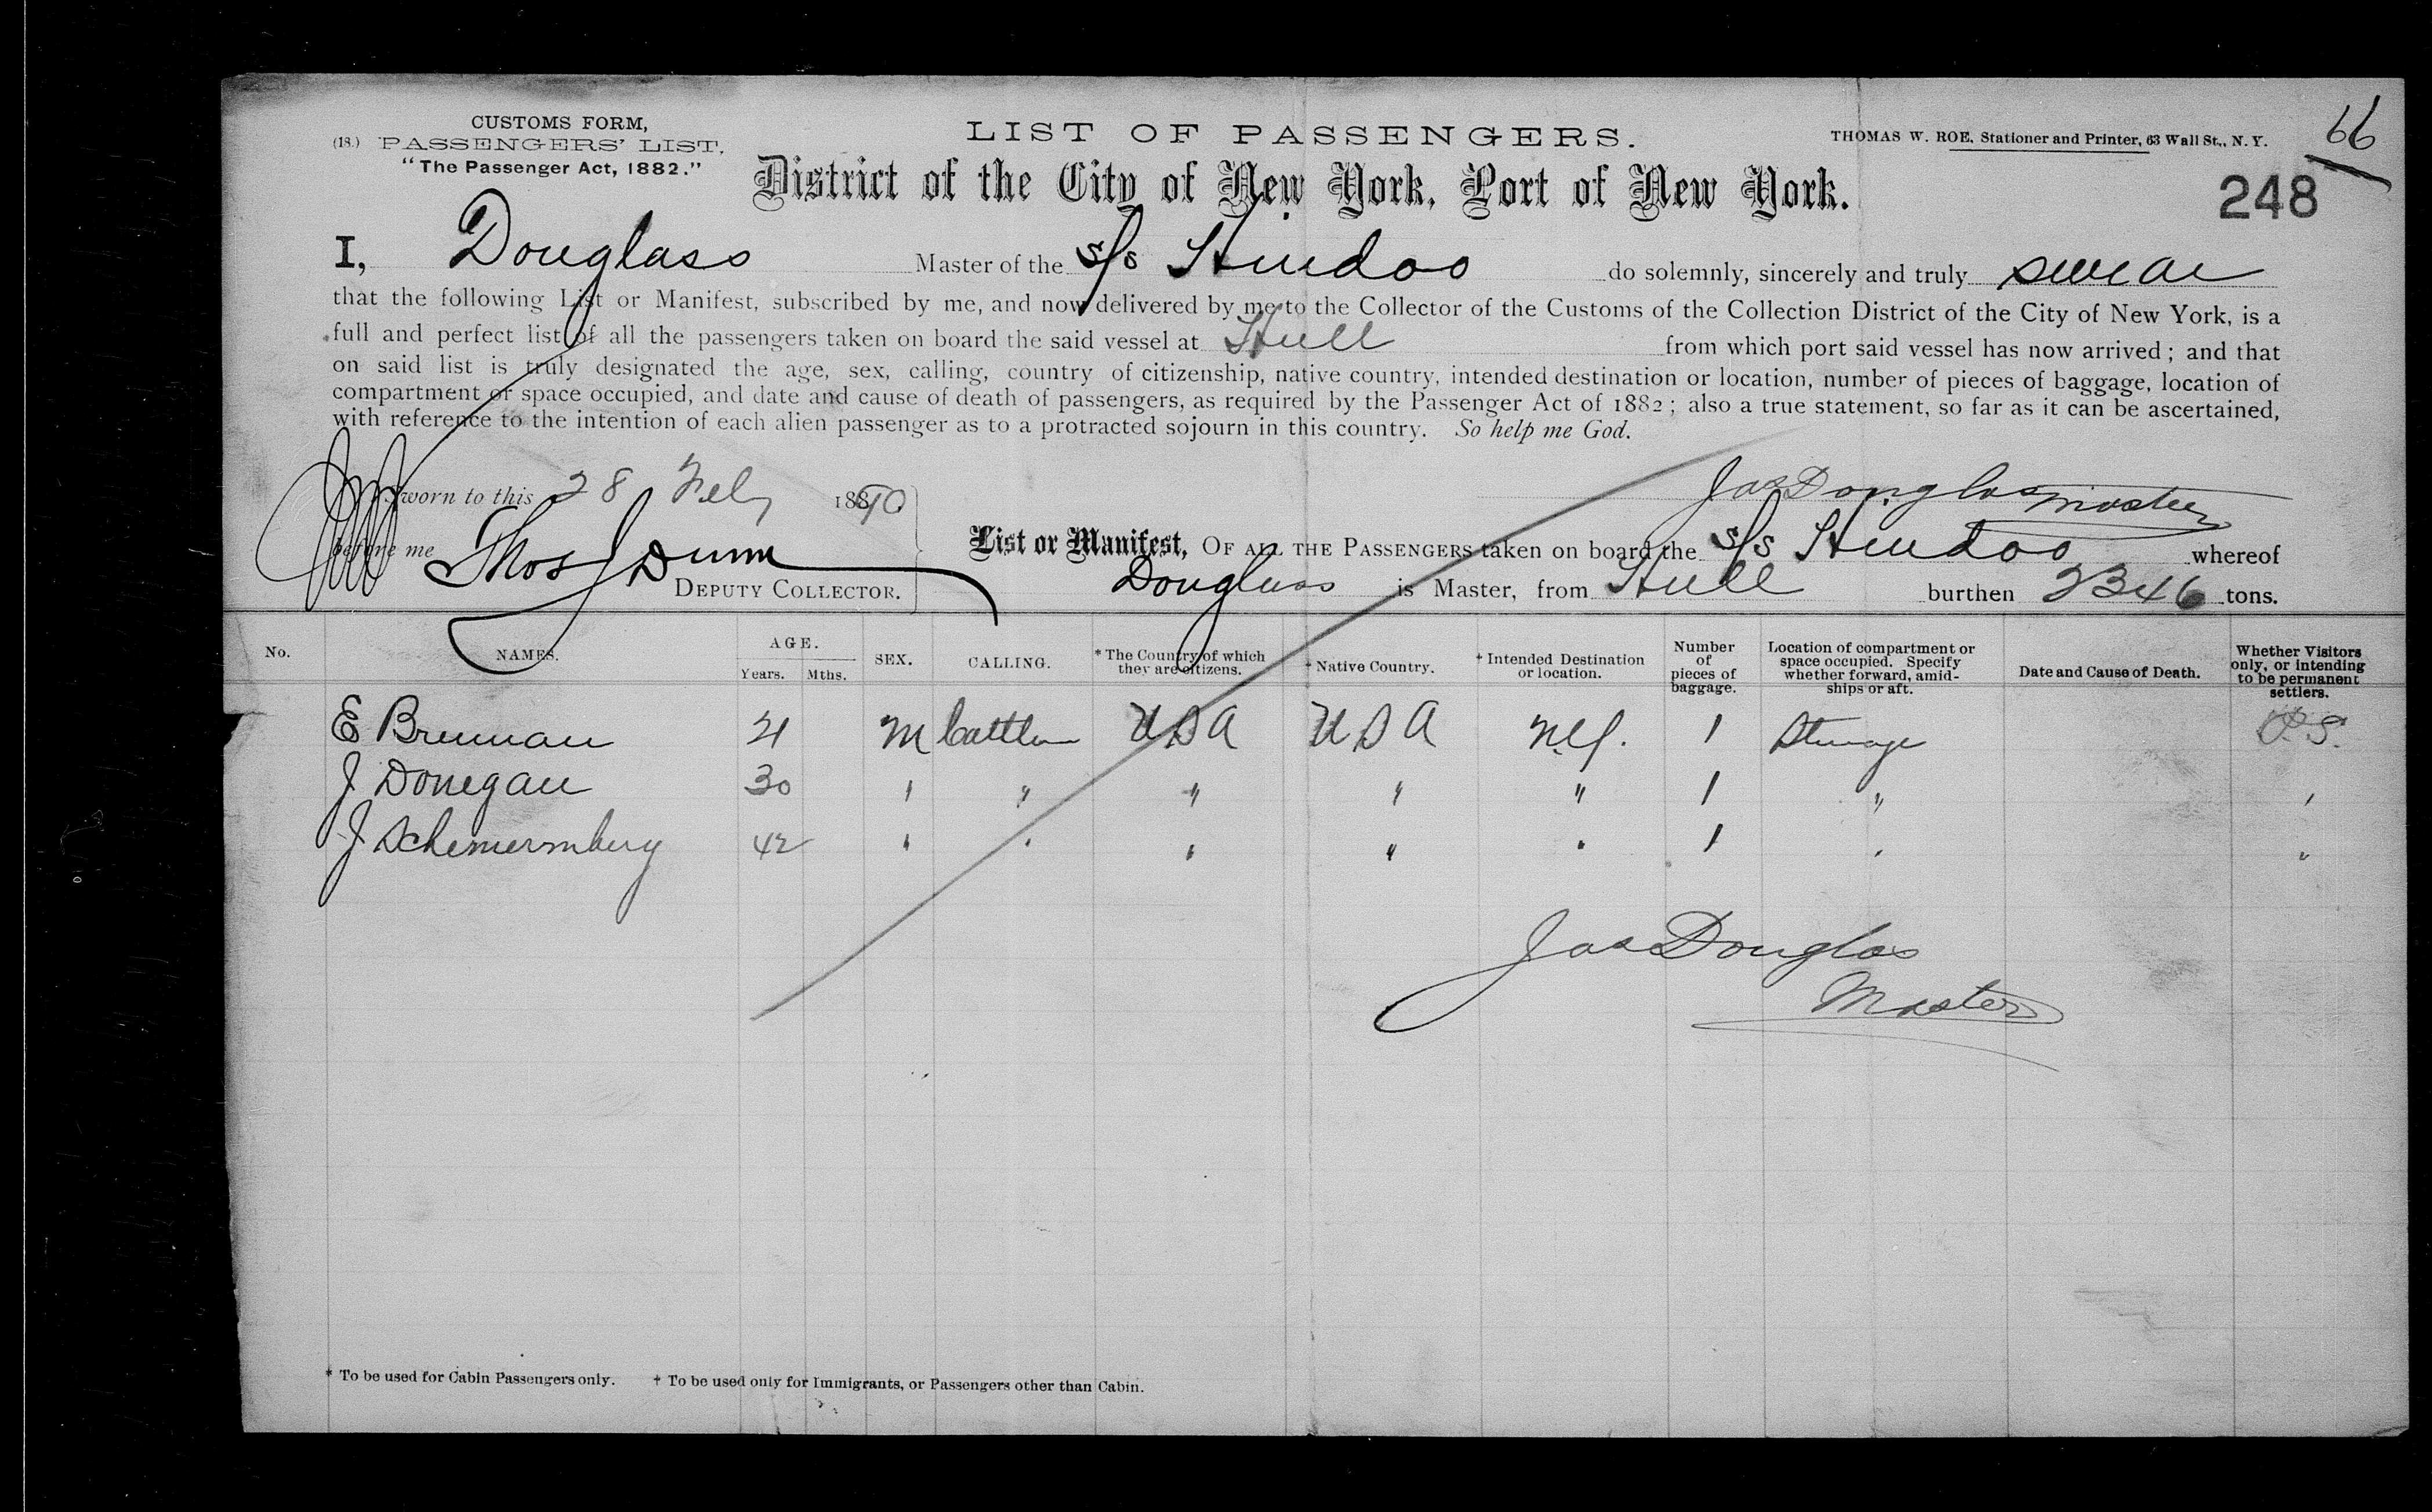 CUSTOMS FORM,
(18.) PASSENGERS' LIST.
"The Passenger Act, 1882."
LIST OF PASSENGERS.
THOMAS W. ROE, Stationer and Printer, 63 Wall St., N. Y.
66
District of the City of New York, Port of New York.
248
I, Douglass Master of the s/s Hindoo do solemnly, sincerely and truly swear
that the following List or Manifest, subscribed by me, and now delivered by me to the Collector of the Customs of the Collection District of the City of New York, is a
full and perfect list of all the passengers taken on board the said vessel at Hull from which port said vessel has now arrived; and that
on said list is truly designated the age, sex, calling, country of citizenship, native country, intended destination or location, number of pieces of baggage, location of
compartment or space occupied, and date and cause of death of passengers, as required by the Passenger Act of 1882; also a true statement, so far as it can be ascertained,
with reference to the intention of each alien passenger as to a protracted sojourn in this country. So help me God.
Sworn to this 28 Feby 1890
Jas Douglas master
before me Thos J Dunn
DEPUTY COLLECTOR.
List or Manifest, OF ALL THE PASSENGERS taken on board the s/s Hindoo whereof
Douglass is Master, from Hull burthen 2346 tons.
No. NAMES. AGE. Years. Mths. SEX. CALLING. * The Country of which they are citizens. † Native Country. † Intended Destination or location. Number of pieces of baggage. Location of compartment or space occupied. Specify whether forward, amidships or aft. Date and Cause of Death. Whether Visitors only, or intending to be permanent settlers.
E Brennan 21 M Cattleman USA USA N.Y. 1 Steerage P.S.
J Donegan 30 " " " " " 1 " "
J Schemermberg 42 " " " " " 1 " "
Jas Douglas
Master
* To be used for Cabin Passengers only. † To be used only for Immigrants, or Passengers other than Cabin.